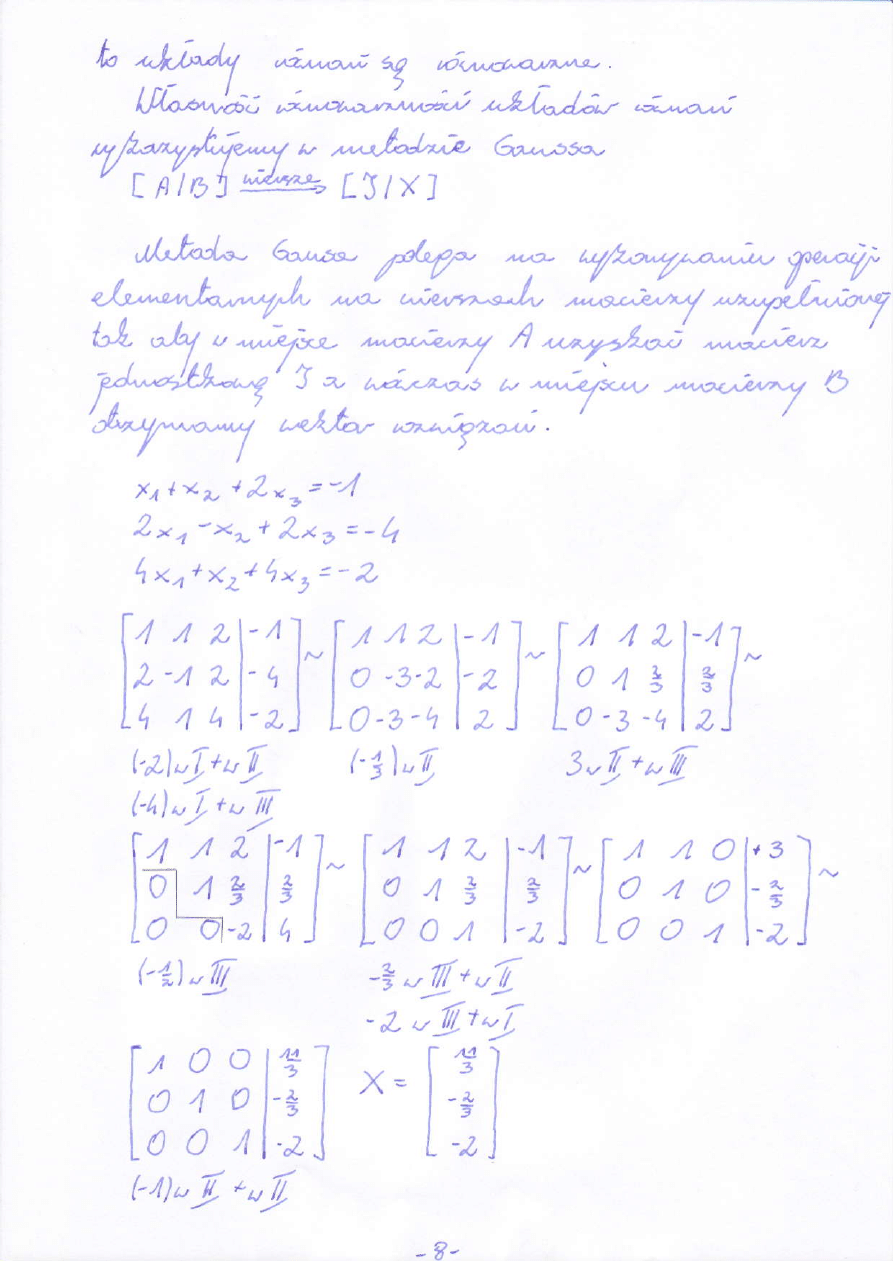 to układy równań są równoważne.
Własność równoważności układów równań
wykorzystujemy w metodzie Gaussa
[A|B] wiersze→ [J|X]
Metoda Gausa polega na wykonywaniu operacji
elementarnych na wierszach macierzy uzupełnionej
tak aby w miejsce macierzy A uzyskać macierz
jednostkową J a wówczas w miejscu macierzy B
otrzymamy wektor rozwiązań.
x₁+x₂+2x₃=-1
2x₁-x₂+2x₃=-4
4x₁+x₂+4x₃=-2
[1 1 2|-1] ~ [1 1 2|-1] ~ [1 1 2|-1] ~
[2 -1 2|-4] [0 -3 -2|-2] [0 1 2/3|2/3]
[4 1 4|-2] [0 -3 -4|2] [0 -3 -4|2]
(-2)wI+wII (-1/3)wII 3wII+wIII
(-4)wI+wIII
[1 1 2|-1] ~ [1 1 2|-1] ~ [1 1 0|+3] ~
[0 1 2/3|2/3] [0 1 2/3|2/3] [0 1 0|-2/3]
[0 0 -2|4] [0 0 1|-2] [0 0 1|-2]
(-1/2)wIII -2/3wIII+wII
-2wIII+wI
[1 0 0|11/3] [11/3]
[0 1 0|-2/3] X= [-2/3]
[0 0 1|-2] [-2]
(-1)wII+wII
-8-